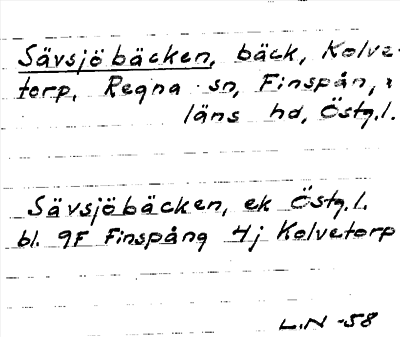 Sävsjöbäcken, bäck, Kolve-
torp, Regna sn, Finspån,
läns hd, Östg.l.
Sävsjöbäcken, ek Östg.l.
bl. 9F Finspång 4j Kolvetorp
L.N -58